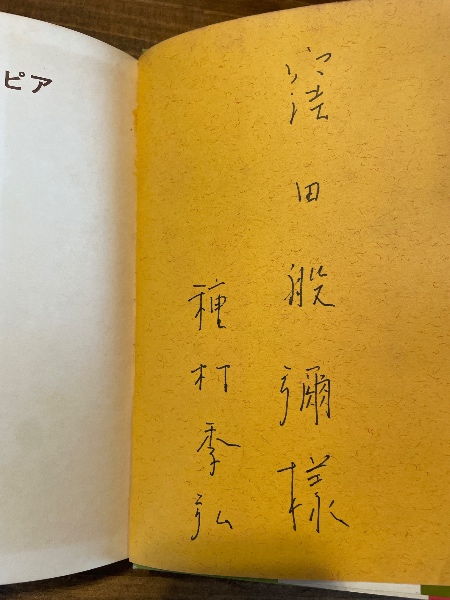 窪田般彌様
種村季弘
ピア